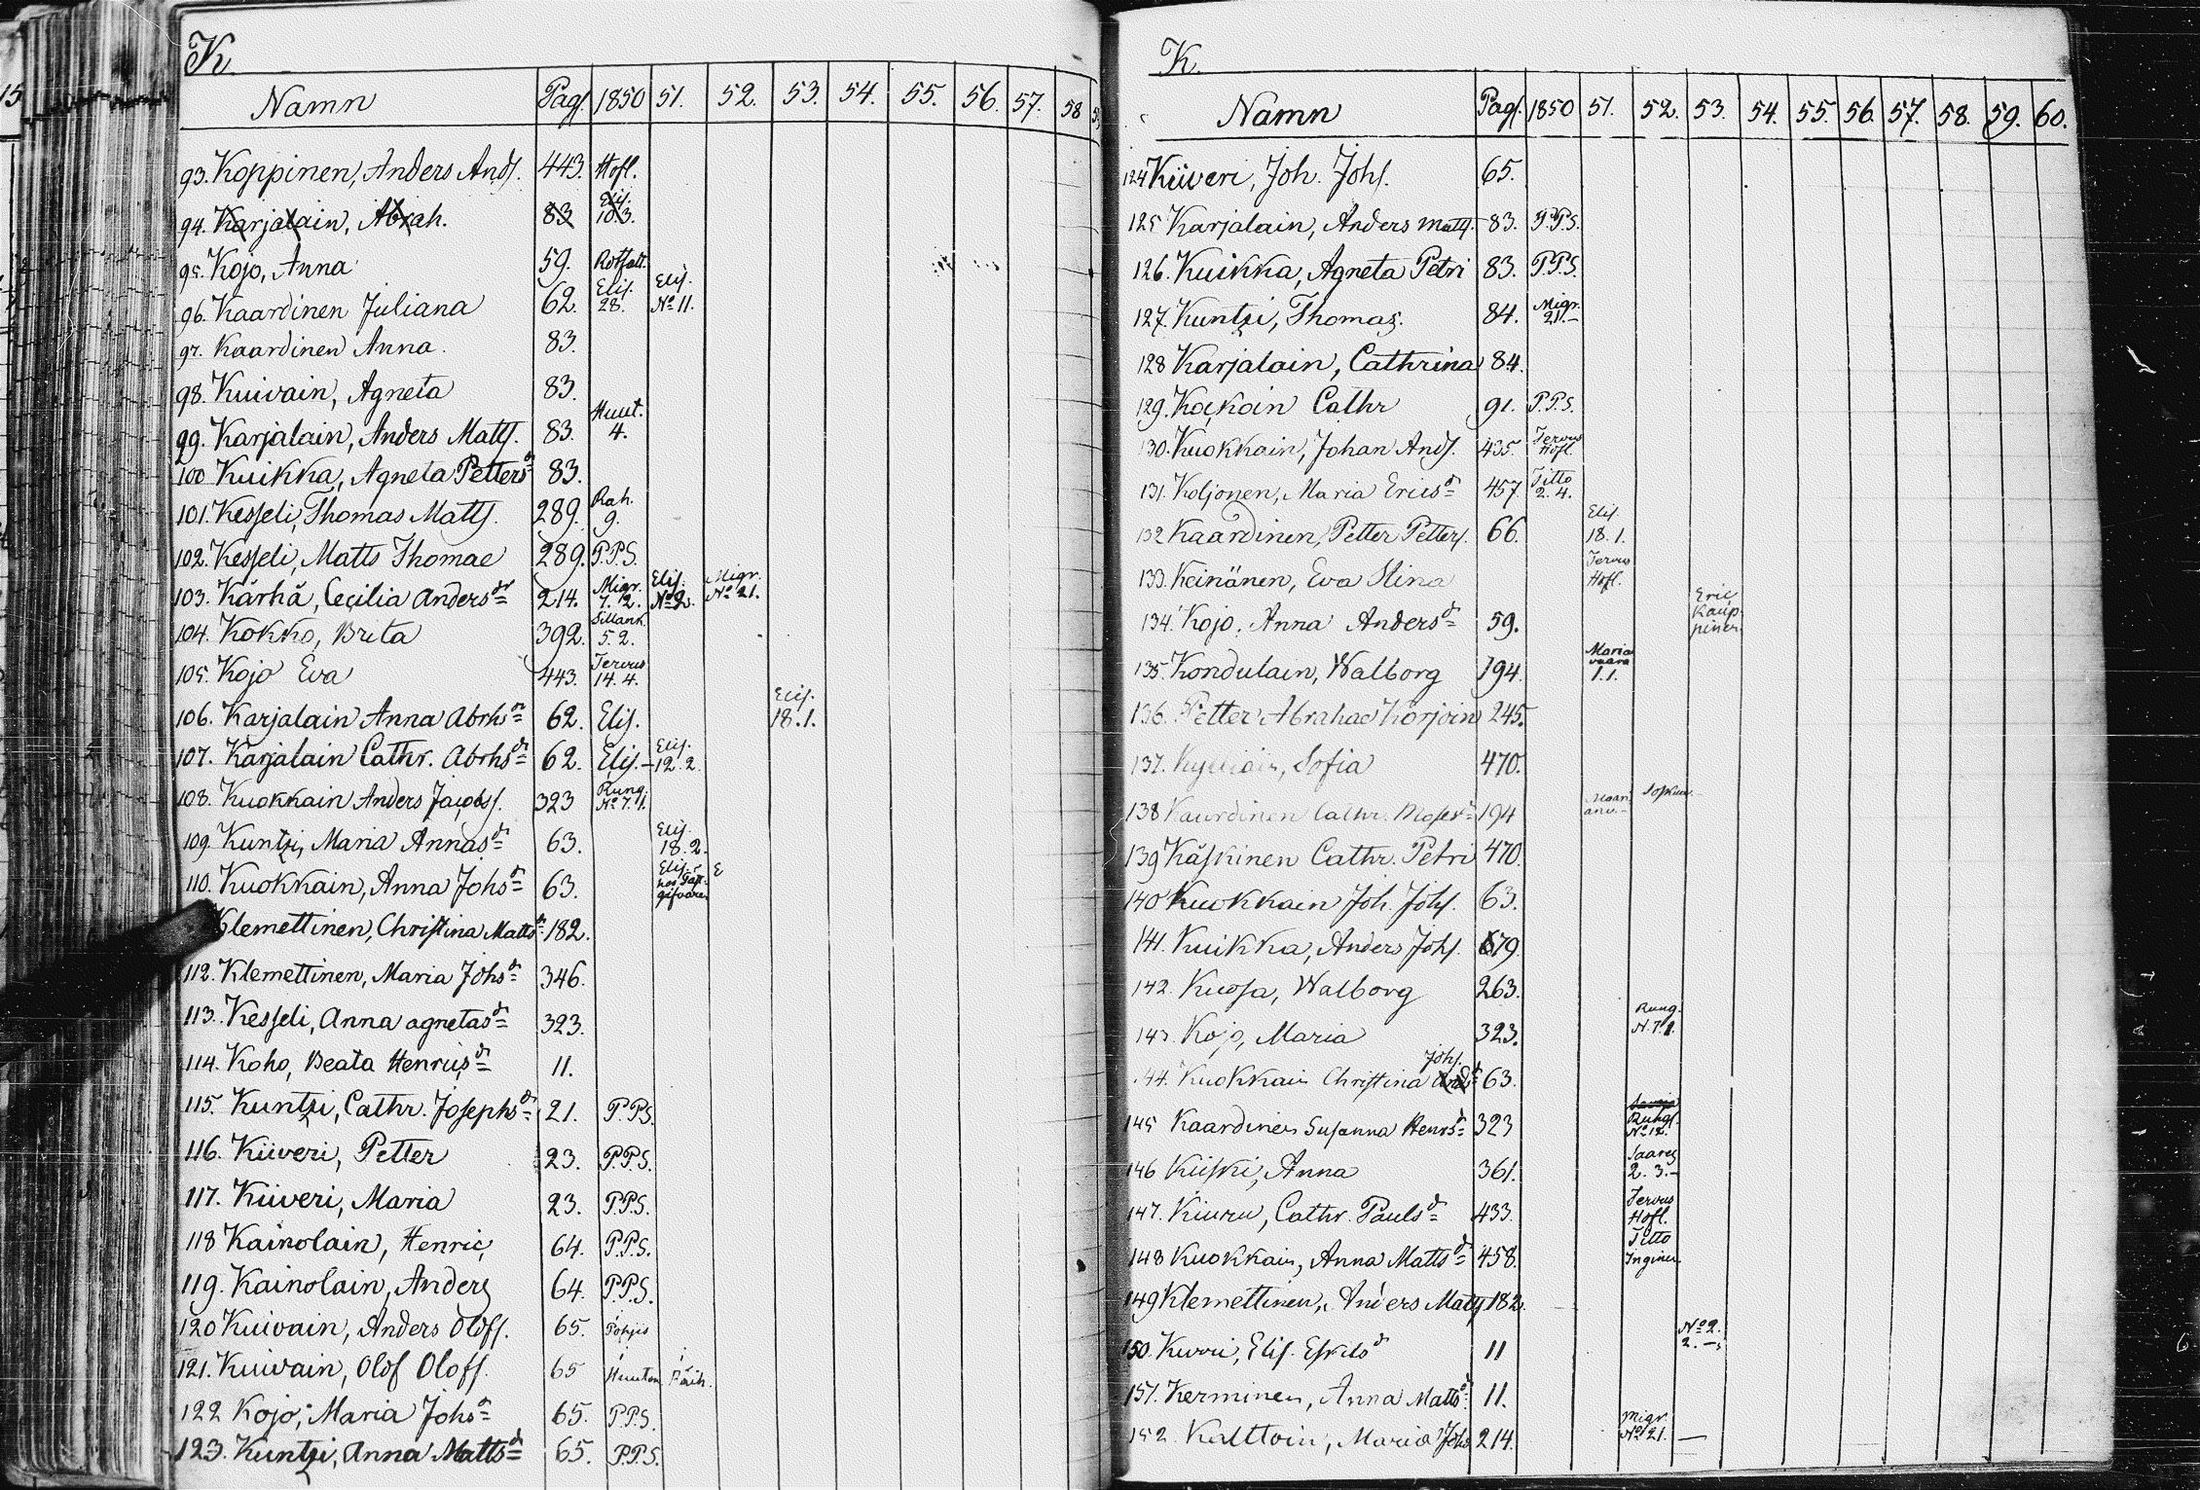 K
Namn Pag. 1850 51. 52. 53. 54. 55. 56. 57. 58
93. Koppinen, Anders Andſ. 443. Hofl.
94. Karjalain, Abrah. 83 Elis. 103.
95. Kojo, Anna 59.
96. Kaardinen Juliana 62. Elis. 28. Elis. No 11.
97. Kaardinen Anna. 83.
98. Kuivain, Agneta 83.
99. Karjalain, Anders Mattſ. 83. Huut. 4.
100 Kuikka, Agneta Pettersd 83.
101. Kesſeli, Thomas Mattſ. 289. Rah. 9.
102. Kesſeli, Matts Thomae 289. P.P.S.
103. Kärhä, Cecilia Andersd 214. Migr. 7. 2. Elis. No 2. Migr. No 21.
104. Kokko, Brita 392. Sillank. 5. 2.
105. Kojo Eva 443. Tervus 14. 4.
106. Karjalain Anna Abrhsd 62. Elis. Elis. 18. 1.
107. Karjalain Cathr. Abrhsd 62. Elis. Elis. 12. 2.
108. Kuokkain Anders Jacobsſ. 323 Rung. No 7. 1.
109. Kuntzi, Maria Annasd 63. Elis. 18. 2.
110. Kuokkain, Anna Johsd 63. Elis. hos
Klemettinen, Chriſtina Mattsd 182.
112. Klemettinen, Maria Johsd 346.
113. Kesſeli, Anna agnetasd 323.
114. Koho, Beata Henricsd 11.
115. Kuntzi, Cathr. Josephsd 21. P.P.S.
116. Kiiveri, Petter 23. P.P.S.
117. Kiiveri, Maria 23. P.P.S.
118 Kainolain, Henric 64. P.P.S.
119. Kainolain, Anders 64. P.P.S.
120 Kuivain, Anders Olofſ. 65. Pohjis
121. Kuivain, Olof Olofſ. 65 Huuton Päih.
122 Kojo, Maria Johsd 65. P.P.S.
123. Kuntzi, Anna Mattsd 65. P.P.S.
K.
Namn Pag. 1850 51. 52. 53. 54. 55. 56. 57. 58. 59. 60.
124 Kiiveri, Joh. Johſ. 65.
125 Karjalain, Anders Mattſ. 83. P.P.S.
126. Kuikka, Agneta Petri 83. P.P.S.
127. Kuntzi, Thomas. 84. Migr. 21.
128 Karjalain, Cathrina 84.
129. Kockoin Cathr 91. P.P.S.
130. Kuokkain, Johan Andſ. 435. Tervus Hofl.
131. Koljonen, Maria Ericsd 457 Titto 2. 4.
132 Kaardinen, Petter Petterſ. 66. Elis. 18. 1.
133. Keinänen, Eva Stina Tervus Hofl.
134. Kojo, Anna Andersd 59. Eric Kauppinen
135. Kondulain, Walborg 194. Maria vaara 1. 1.
136. Petter Abrahae Korjoin 245.
137. Sofia 470.
138 Kaardinen Cathr. Moſesd 194
139 Käſkinen Cathr. Petri 470.
140 Kuokkain Joh. Johſ. 63.
141. Kuikka, Anders Johſ. 679.
142. Kuoſa, Walborg 263.
143. Kojo, Maria 323. Rung. N. 7 1.
144. Kuokkain Chriſtina Johſ. d 63.
145 Kaardinen Suſanna Henrsd 323 Rungſ. No 12.
146 Kiiſki, Anna 361. Saarez 2. 3.
147. Kiuru, Cathr. Paulsd 433. Tervus Hofl.
148 Kuokkain, Anna Mattsd 458. Titto Inginen
149 Klemettinen, Anders Mattſ 182.
150. Kurri, Elis. Eſkilsd 11 No 2. 2.
151. Kerminen, Anna Mattsd 11.
152 Kalttoin, Maria Johs 214. Migr. No 21.